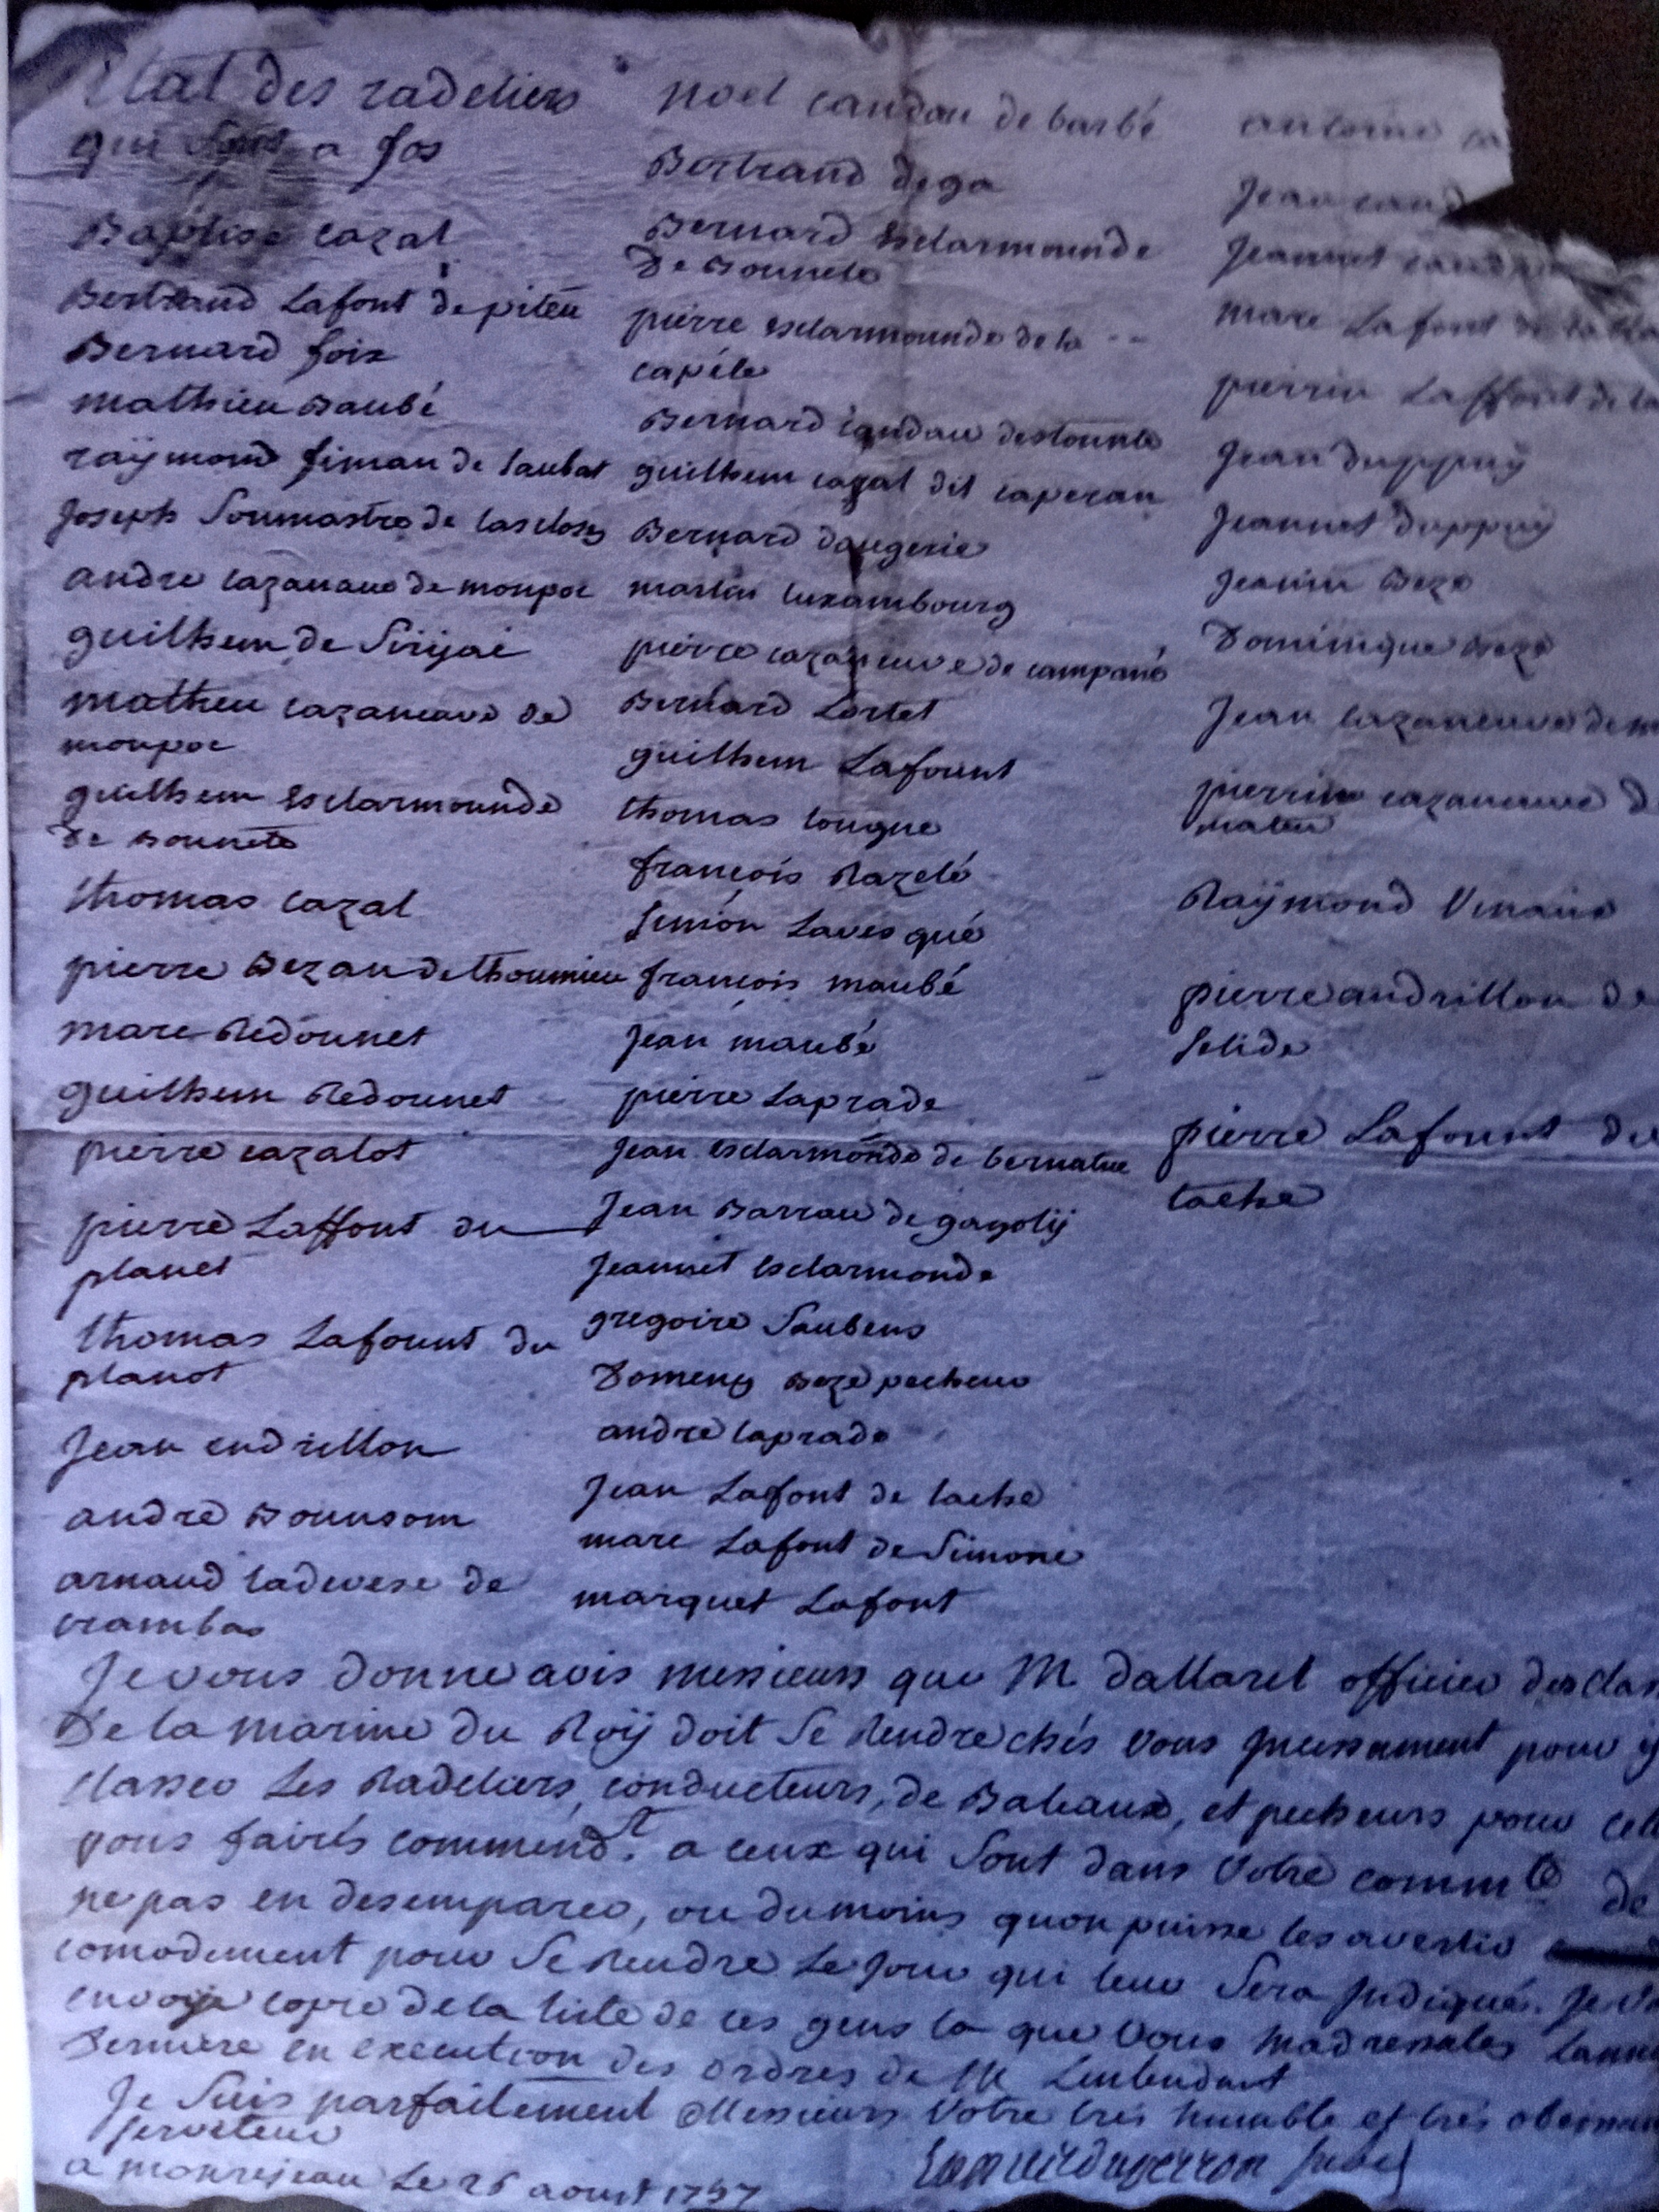 Etat des radeliers
qui sont a fos
Baptise cazal
Bertrand Lafont de piteu
Bernard foix
mathieu Baubé
raÿmond fiman de laubat
Joseph Soumastre de lasclosy
andre cazanaue de moupoc
guilhem de Sirijai
matheu cazaneave de
moupoc
guilhem Esclarmounde
De Bounete
thomas cazal
pierre Bezau de thoumieu
marc Redounet
guilhem Redounet
pierre cazalot
pierre Laffont du
planet
thomas Lafount du
planot
Jean endrillon
andre Bounsom
arnaud ladevese de
crambas
noel candau de barbé
Bertrand dega
Bernard Esclarmounde
De Bounete
pierre Esclarmounde de la
capéle
Bernard candau destounte
guilhem cazal dit caperan
Bernard daugerie
martin luxambourg
pierre cazaneuve de campané
Bernard Lortet
guilhem Lafount
thomas lougue
françois Razele
Simon Lavesqué
françois maubé
Jean maubé
pierre Laprade
Jean esclarmonde de bernatue
Jean Barrau de gagolÿ
Jeannet Esclarmonde
gregoire Saubens
Domeng Beze pecheur
andre laprade
Jean Lafont de tache
marc Lafont de Simone
marquet Lafont
antoine ca
Jean cand
Jeannet cand
marc Lafont de la
pierrin Laffont de la
Jean duppuÿ
Jeannet duppuÿ
Jeanin Beze
Dominique Beze
Jean cazaneuve de m
pierrin cazaneuve de
mateu
Raÿmond Vinaue
pierre andrillon de
felide
pierre Lafount de
tache
Je vous donne avis messieurs que M dallaret officier des clas
De la marine du Roÿ doit se Rendre chés vous incessament pour ÿ
Classer Les Radeliers, conducteurs, de Bateaux, et pecheurs pour cell
vous fairés commend.t a ceux qui sont dans votre comm.té de
ne pas en desemparer, ou du moins quon puisse les avertir
comodement pour se Rendre Le Jour qui leur sera Indiqués. Je vo
envoÿe copie de la liste de ces gens la que vous madressates Lanne
Derniere en execution des ordres de M Lintendant
Je suis parfaitement Messieurs Votre tres humble et tres obeissan
serviteur
a monrejeau Le 26 aoust 1757